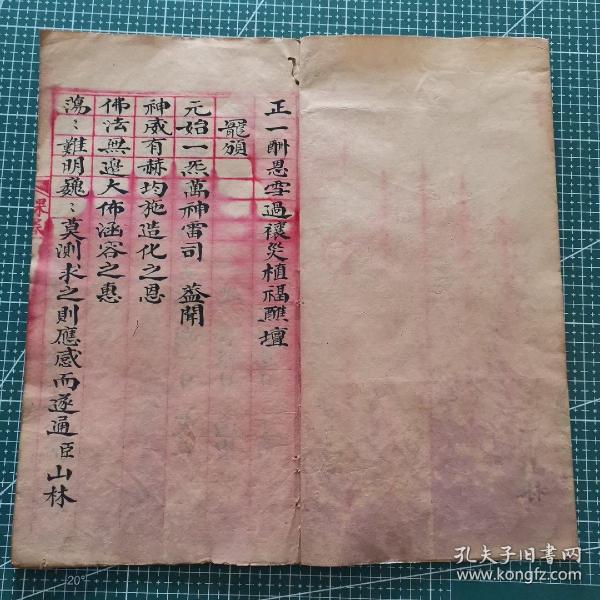 正一酧恩雪過禳災植福醮壇
罷頒
元始一炁萬神雷司 葢聞
神威有赫均施造化之恩
佛法無邊大佈涵容之惠
蕩〻難明巍〻莫測求之則應感而遂通臣山林
孔夫子旧书网
www.kongfz.com
20°